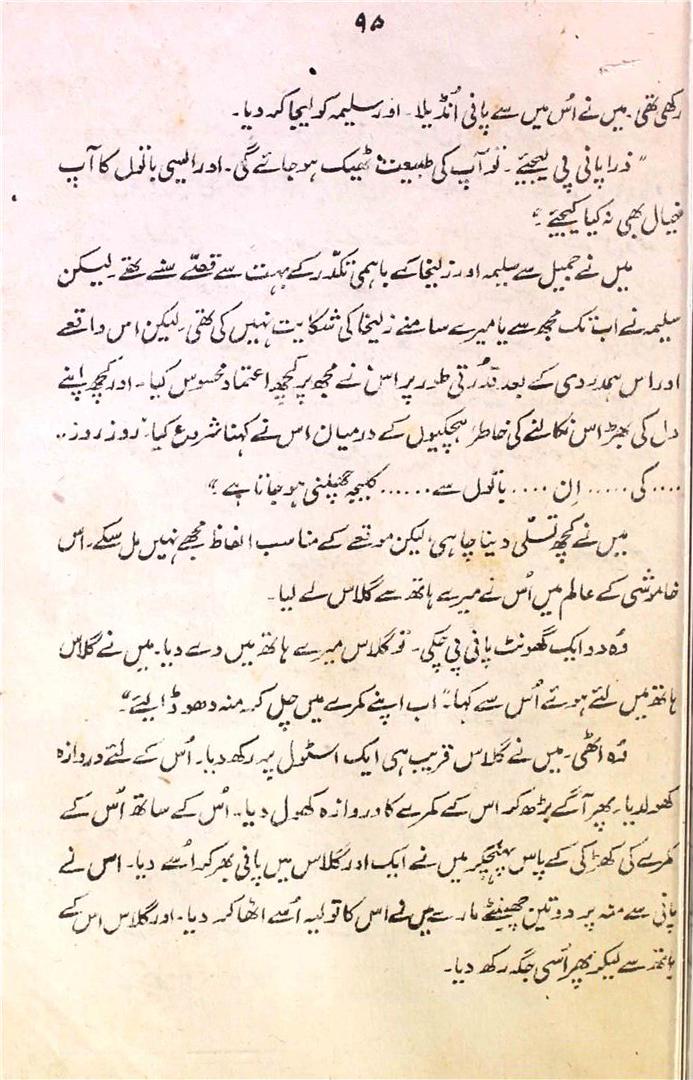 ۹۵
رکھی تھی۔ میں نے اُس میں سے پانی اُنڈیلا۔ اور سلیمہ کو لیجا کر دیا۔
" ذرا پانی پی لیجئے۔ تو آپ کی طبیعت ٹھیک ہو جائے گی۔ اور ایسی باتوں کا آپ
خیال بھی نہ کیا کیجئے ۔"
میں نے جمیل سے سلیمہ اور زلیخا کے باہمی تکدّر کے بہت سے قصّے سنے تھے۔ لیکن
سلیمہ نے اب تک مجھ سے یا میرے سامنے زلیخا کی شکایت نہیں کی تھی۔ لیکن اس واقعے
اور اس ہمدردی کے بعد قدُرتی طور پر اس نے مجھ پر کچھ اعتماد محسوس کیا۔ اور کچھ اپنے
دل کی بھڑاس نکالنے کی خاطر ہچکیوں کے درمیان اس نے کہنا شروع کیا "روز روز ..
.... کی ..... اِن .... باتوں سے ...... کلیجہ چھلنی ہو جاتا ہے ۔"
میں نے کچھ تسلّی دینا چاہی، لیکن موقعے کے مناسب الفاظ مجھے نہیں مل سکے۔ اس
خاموشی کے عالم میں اُس نے میرے ہاتھ سے گلاس لے لیا۔
وُہ دو ایک گھونٹ پانی پی چکی۔ تو گلاس میرے ہاتھ میں دے دیا۔ میں نے گلاس
ہاتھ میں لئے ہوئے اُس سے کہا۔ "اب اپنے کمرے میں چل کر منہ دھو ڈالیئے"۔
وُہ اُٹھی۔ میں نے گلاس قریب ہی ایک اسٹول پر رکھ دیا۔ اُس کے لئے دروازہ
کھولدیا۔ پھر آگے بڑھ کر اس کے کمرے کا دروازہ کھول دیا۔ اُس کے ساتھ اُس کے
کمرے کی کھڑکی کے پاس پہنچکر میں نے ایک اور گلاس میں پانی بھر کر اُسے دیا۔ اس نے
پانی سے منہ پر دو تین چھینٹے مارے میں نے اس کا تولیہ اُسے اٹھا کر دیا۔ اور گلاس اس کے
ہاتھ سے لیکر پھر اُسی جگہ رکھ دیا۔